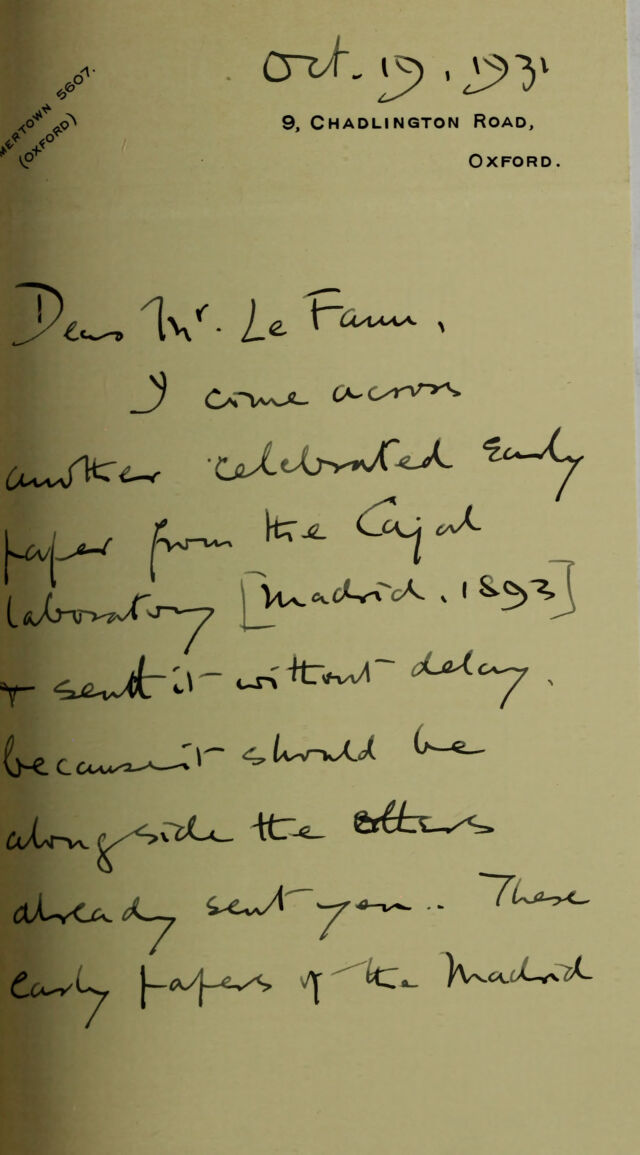 MERTOWN 5607.
(OXFORD)
Oct. 19, 1931
9, CHADLINGTON ROAD,
OXFORD.
Dear Mr. Le Fanu,
I come across
another celebrated early
paper from the Cajal
laboratory [Madrid. 1893]
+ send it without delay,
because it should be
alongside the others
already sent you.. These
early papers of the Madrid